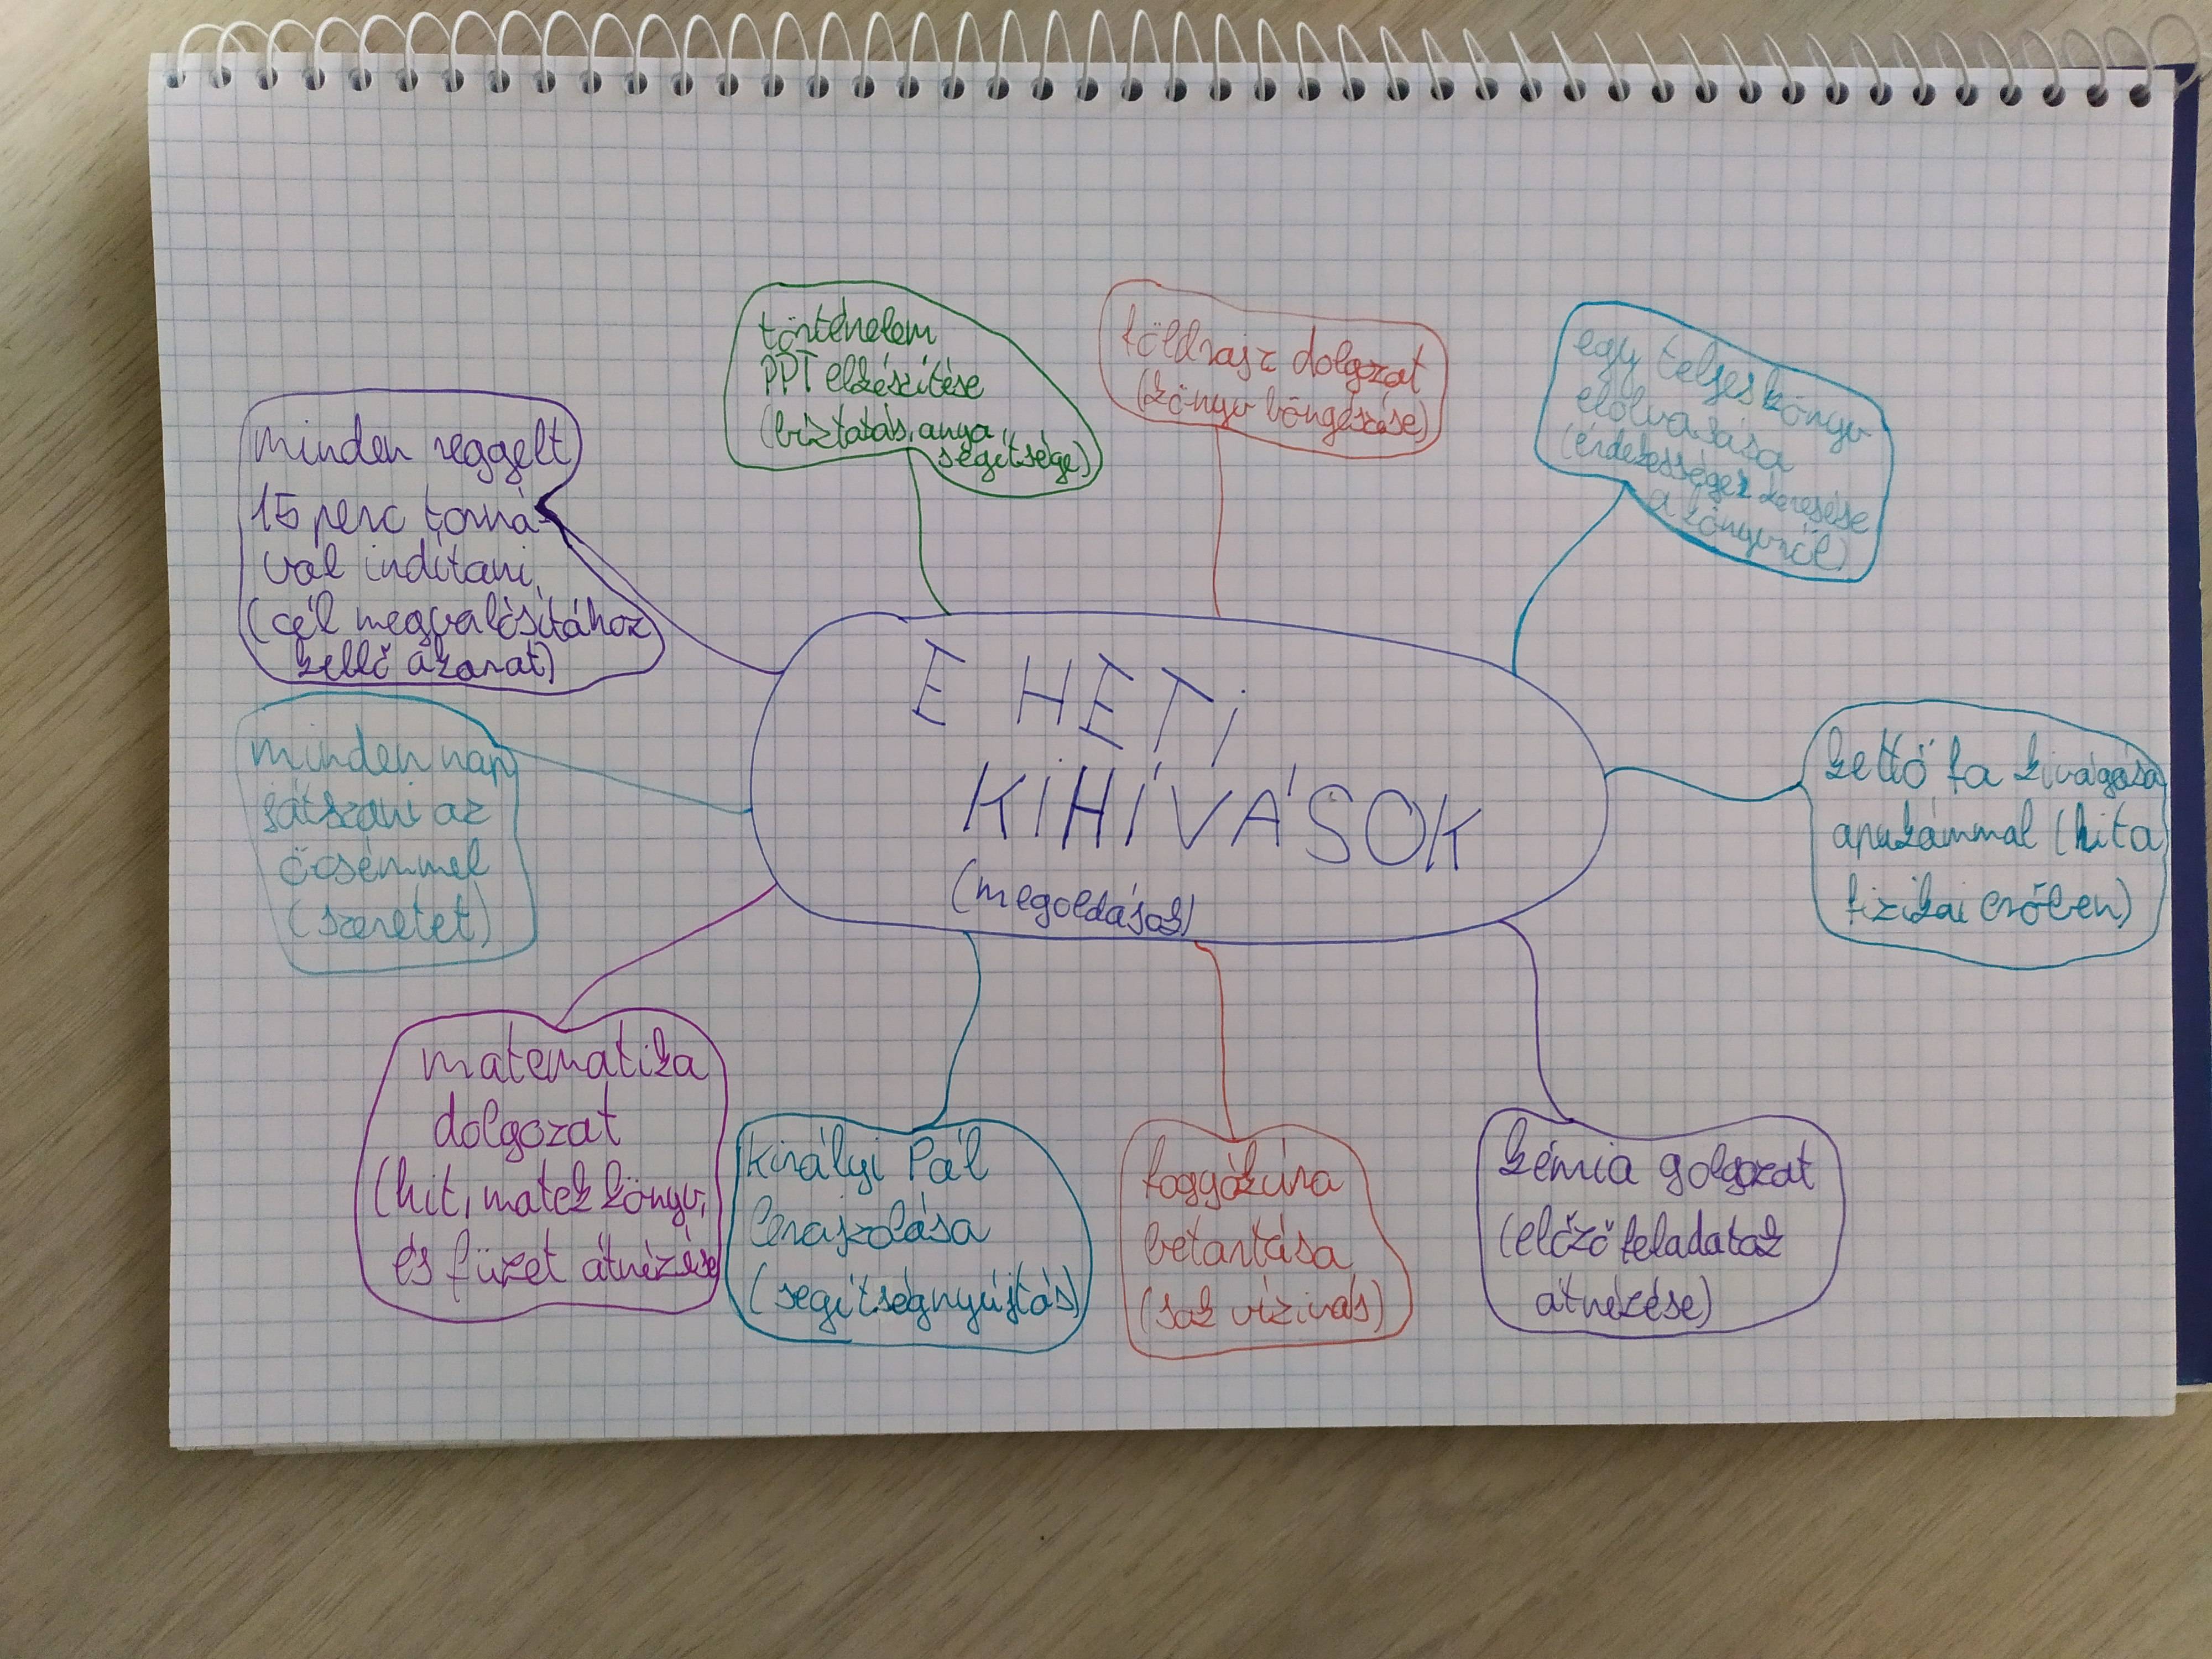 E HETI
KIHÍVÁSOK
(megoldások)
történelem
PPT elkészítése
(bíztatás, anya
segítsége)
földrajz dolgozat
(könyv böngészése)
egy teljes könyv
elolvasása
(érdekességek keresése
a könyvről)
kettő fa kivágása
apukámmal (hit a
fizikai erőben)
kémia golgozat
(előző feladatak
átnézése)
foggyókúra
betartása
(sok vízivás)
Királyi Pál
lerajzolása
(segítségnyújtás)
matematika
dolgozat
(hit, matek könyv,
és füzet átnézése
minden nap
játszani az
öcsémmel
(szeretet)
minden reggelt
15 perc torná-
val indítani
(cél megvalósításához
kellő akarat)